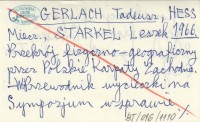 GERLACH Tadeusz, HESS
Miecz., STARKEL Leszek 1966.
Przekrój fizyczno-geograficzny
przez Polskie Karpaty Zachodnie.
Przewodnik wycieczki na
Sympozjum w sprawie
BT/016/1110